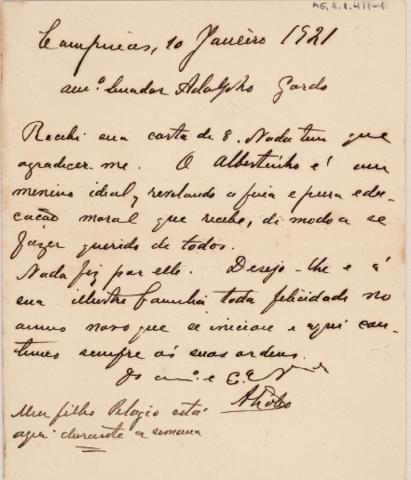 AG.A.1.411-1
Campinas, 10 Janeiro 1921
am.º Senador Adolpho Gordo
Recebi sua carta de 8. Nada tem que
agradecer-me. O Albertinho é um
menino ideal, revelando a fina e pura edu-
cação moral que recebe, de modo a se
fazer querido de todos.
Nada fiz por elle. Desejo-lhe e á
sua illustre familia toda felicidade no
anno novo que se inicia e aqui con-
tinuo sempre ás suas ordens.
Do am.º e
A Lobo
Meu filho Pelagio está
aqui durante a semana